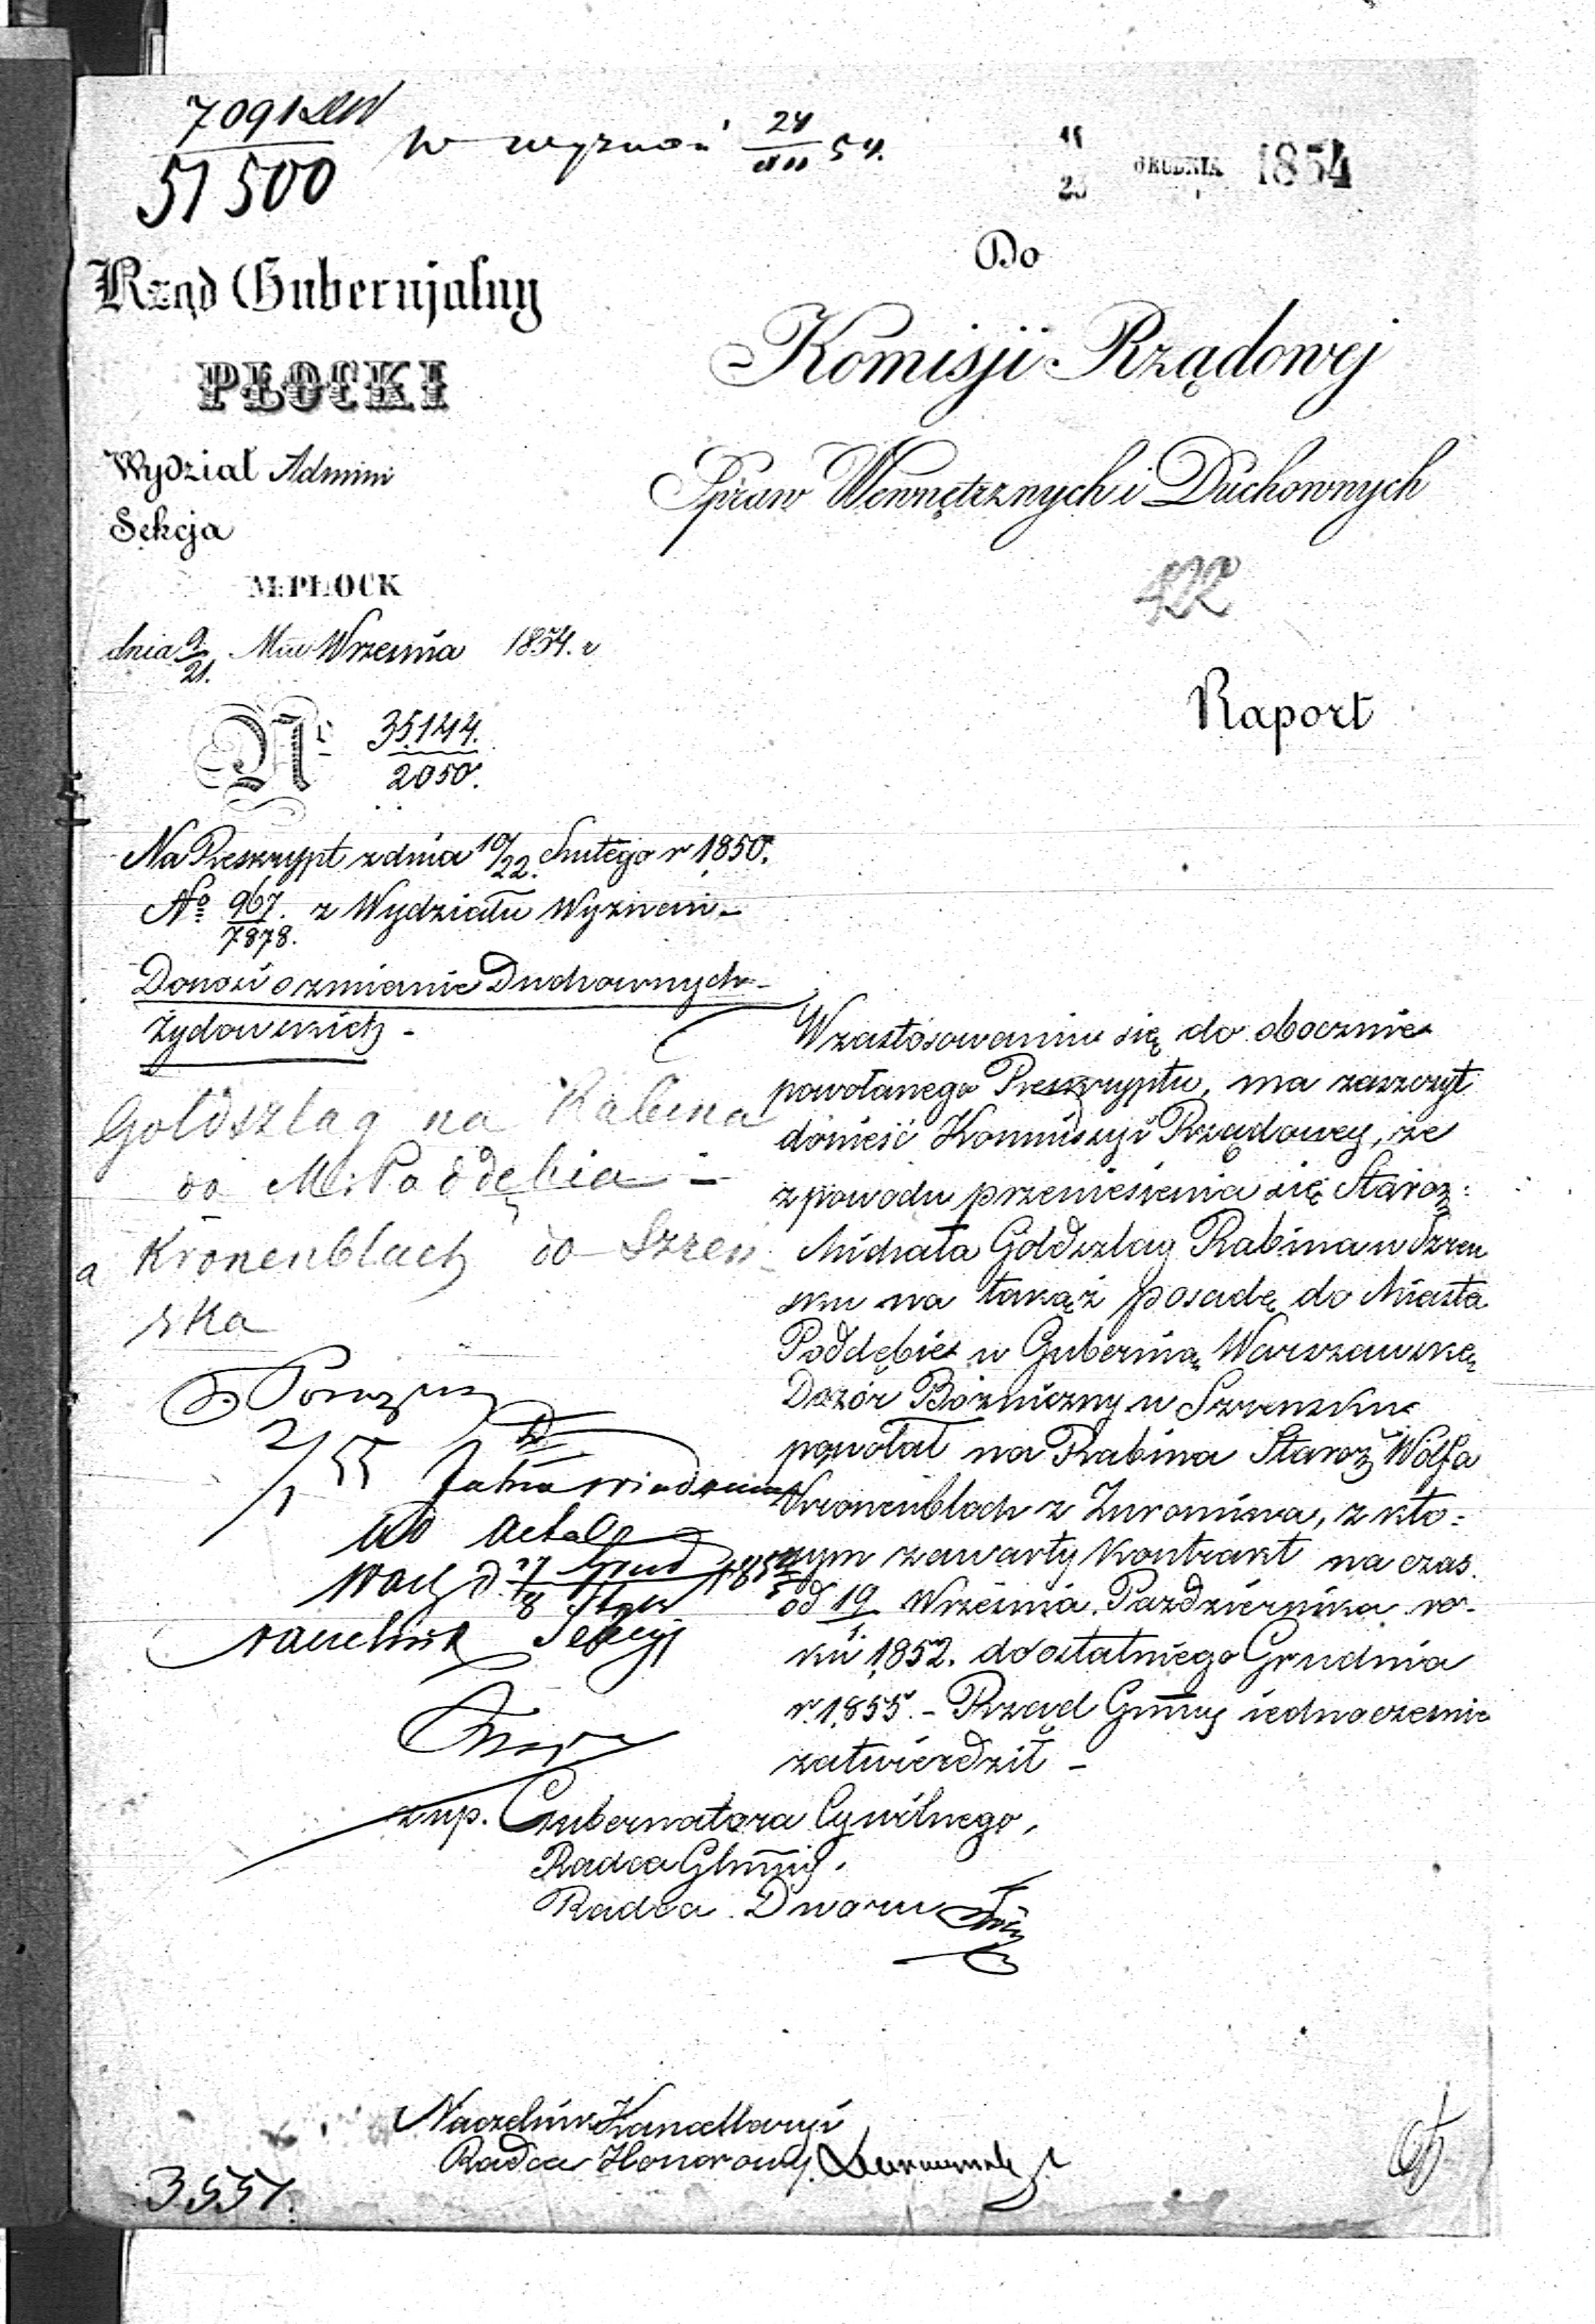 51500
24
54.
GRUDNIA 1854
Rząd Gubernjalny
PŁOCKI
Wydział Admini
Sekcja
M: PŁOCK
dnia 9/21. Września 1854. r
No 35144.
2050.
Do
Komisji Rządowej
Spraw Wewnętrznych i Duchownych
Raport
Na Reskrypt z dnia 10/22. Lutego r 1850.
No 967. z Wydziału Wyznań
7878.
Donosi o zmianie Duchownych
Żydowskich -
Goldszlag na Rabina
do M. Poddębia -
a Kronenblach do Szren
ska
W zastosowaniu się do obocznie
powołanego Reskryptu, ma zaszczyt
donieść Kommissyi Rządowey, że
z powodu przeniesienia się Staroz:
Michała Goldszlag Rabina w Szren
sku na takąż posadę do Miasta
Poddębie w Gubernią Warszawską
Dozór Bózniczny w Szrensku
powołał na Rabina Staroz Wolfa
Kronenblach z Zuromina, z któ:
rym zawarty kontrakt na czas
od 19/1. Września Października ro-
ku 1852. do ostatniego Grudnia
r. 1855. - Rząd Gunny iednocześnie
zatwierdził -
ad acta
Naczelnik Sekcyi
zup. Gubernatora Cywilnego,
Radca
Radca Dworu
Naczelnik Kancellaryi
Radca Honorowy